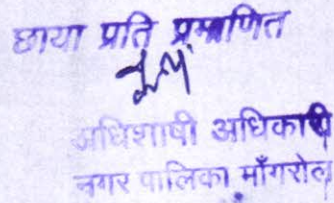 छाया प्रति प्रमाणित
अधिशाषी अधिकारी
नगर पालिका माँगरोल